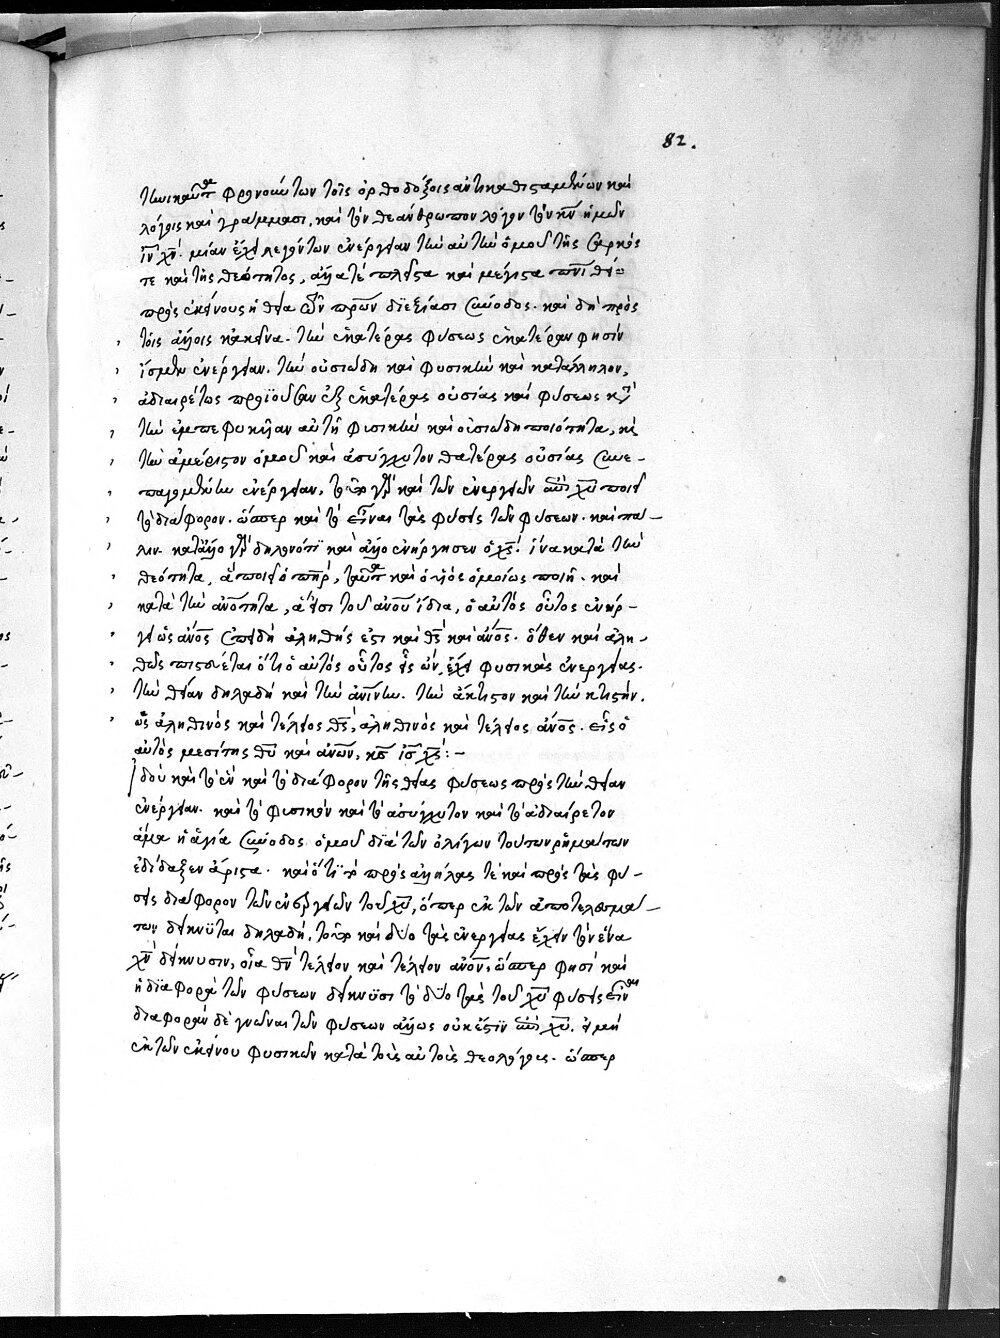 82.
τῶν ταῦτα φρονούντων τοῖς ὀρθοδόξοις ἀντικαθισταμένων καὶ
λόγοις καὶ γράμμασι, καὶ τὸν θεάνθρωπον λόγον τὸν κν ἡμῶν
ιν χν. μίαν ἔχειν λεγόντων ἐνέργειαν τὴν αὐτὴν ὁμοῦ τῆς σαρκός
τε καὶ τῆς θεότητος, ἀλλά τε πλεῖστα καὶ μέγιστα
πρὸς ἐκείνους ἡ θεία τῶν πρων διεξίασι σύνοδος. καὶ δὴ πρὸς
τοῖς ἄλλοις κἀκεῖνα. τὴν ἑκατέρας φύσεως ἑκατέραν φησὶν
ἴσμεν ἐνέργειαν. τὴν οὐσιώδη καὶ φυσικὴν καὶ κατάλληλον,
ἀδιαιρέτως προϊοῦσαν ἐξ ἑκατέρας οὐσίας καὶ φύσεως κατὰ
τὴν ἐμπεφυκυῖαν αὐτῇ φυσικὴν καὶ οὐσιώδη ποιότητα, καὶ
τὴν ἀμέριστον ὁμοῦ καὶ ἀσύγχυτον θατέρας οὐσίας συνε-
παγομένην ἐνέργειαν. τοῦτο γὰρ καὶ τῶν ἐνεργειῶν ἐπὶ χυ ποιεῖ
τὸ διάφορον. ὥσπερ καὶ τὸ εἶναι τὰς φύσεις τῶν φύσεων. καὶ πά-
λιν. κατ' ἄλλο γὰρ δηλονότι καὶ ἄλλο ἐνήργησεν ὁ χς. ἵνα κατὰ τὴν
θεότητα, ἃ ποιεῖ ὁ πηρ, ταῦτα καὶ ὁ υἱὸς ὁμοίως ποιῇ. καὶ
κατὰ τὴν ἀνότητα, ἅ εἰσι τοῦ ἀνου ἴδια, ὁ αὐτὸς οὗτος ἐνήρ-
γει ὡς ἀνος ἐπειδὴ ἀληθής ἐστι καὶ θς καὶ ἀνος. ὅθεν καὶ ἀλη-
θῶς πιστεύεται ὅτι ὁ αὐτὸς οὗτος εἷς ὤν, ἔχει φυσικὰς ἐνεργείας.
τὴν θείαν δηλαδὴ καὶ τὴν ἀνίνην. τὴν ἄκτιστον καὶ τὴν κτιστήν.
ὡς ἀληθινὸς καὶ τέλειος θς, ἀληθινὸς καὶ τέλειος ἀνος. εἷς ὁ
αὐτὸς μεσίτης θυ καὶ ἀνων, κς ις χς:-
Ἰδοὺ καὶ τὸ ἓν καὶ τὸ διάφορον τῆς θείας φύσεως πρὸς τὴν θείαν
ἐνέργειαν. καὶ τὸ φυσικὸν καὶ τὸ ἀσύγχυτον καὶ τὸ ἀδιαίρετον
ἅμα ἡ ἁγία σύνοδος ὁμοῦ διὰ τῶν ὀλίγων τούτων ῥημάτων
ἐδίδαξεν ἄριστα. καὶ ὅτι τὸ πρὸς ἀλλήλας τὲ καὶ πρὸς τὰς φύ-
σεις διάφορον τῶν ἐνεργειῶν τοῦ χυ, ὅπερ ἐκ τῶν ἀποτελεσμά-
των δείκνυται δηλαδή, τοῦτο καὶ δύο τὰς ἐνεργείας ἔχειν τὸν ἕνα
χν δείκνυσιν, οἷα θν τέλειον καὶ τέλειον ἀνον. ὥσπερ φησὶ καὶ
ἡ διαφορὰ τῶν φύσεων δείκνυσι τὸ δύο τὰς τοῦ χυ φύσεις εἶναι
διαφορὰν δὲ γνῶναι τῶν φύσεων ἄλλως οὐκ ἔστιν ἐπὶ χυ. εἰ μὴ
ἐκ τῶν ἐκείνου φυσικῶν κατὰ τοὺς αὐτοὺς θεολόγους. ὥσπερ